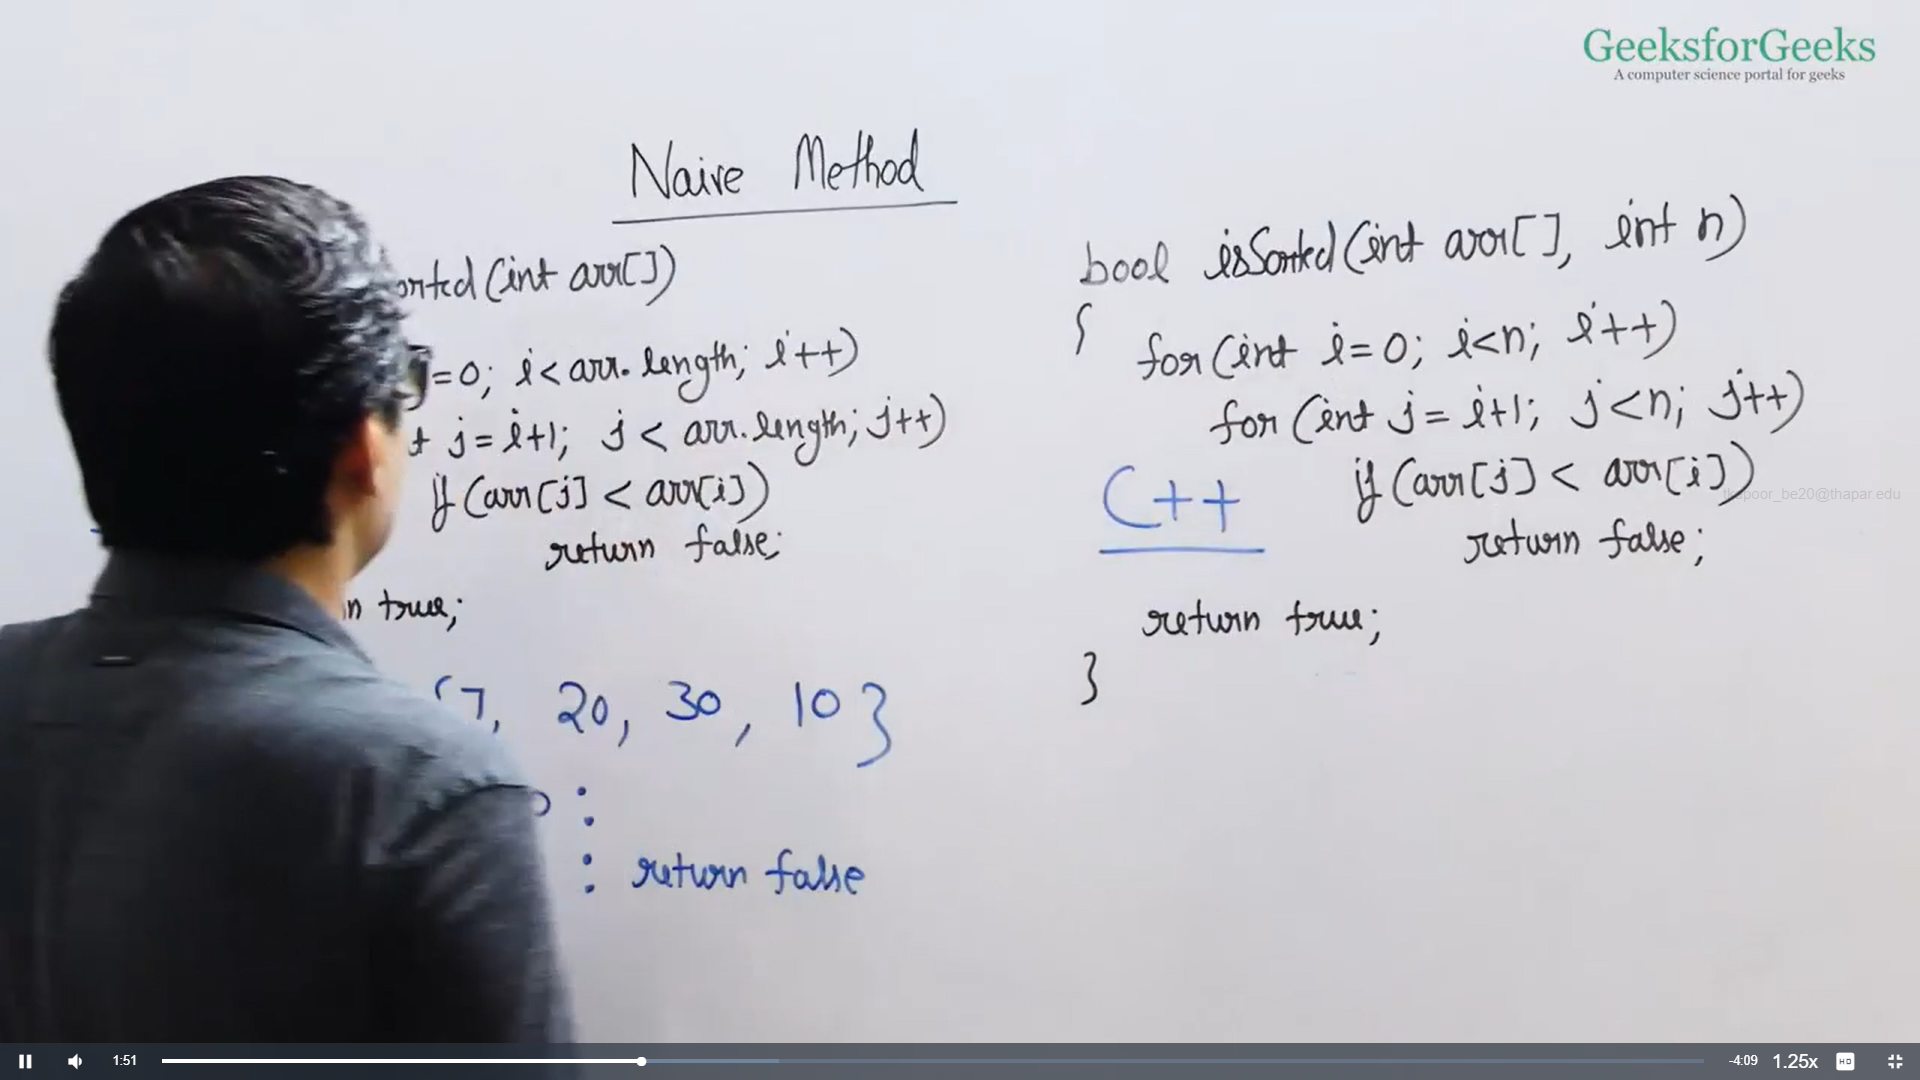 GeeksforGeeks
A computer science portal for geeks
Naive Method
orted (int arr[])
=0; i < arr.length; i++)
t j = i+1; j < arr.length; j++)
if (arr[j] < arr[i])
return false;
n true;
{7, 20, 30, 10}
:
: return false
bool isSorted (int arr[], int n)
{
for (int i=0; i<n; i++)
for (int j = i+1; j<n; j++)
C++
if (arr[j] < arr[i])
return false;
return true;
}
_be20@thapar.edu
1:51
-4:09
1.25x
HD